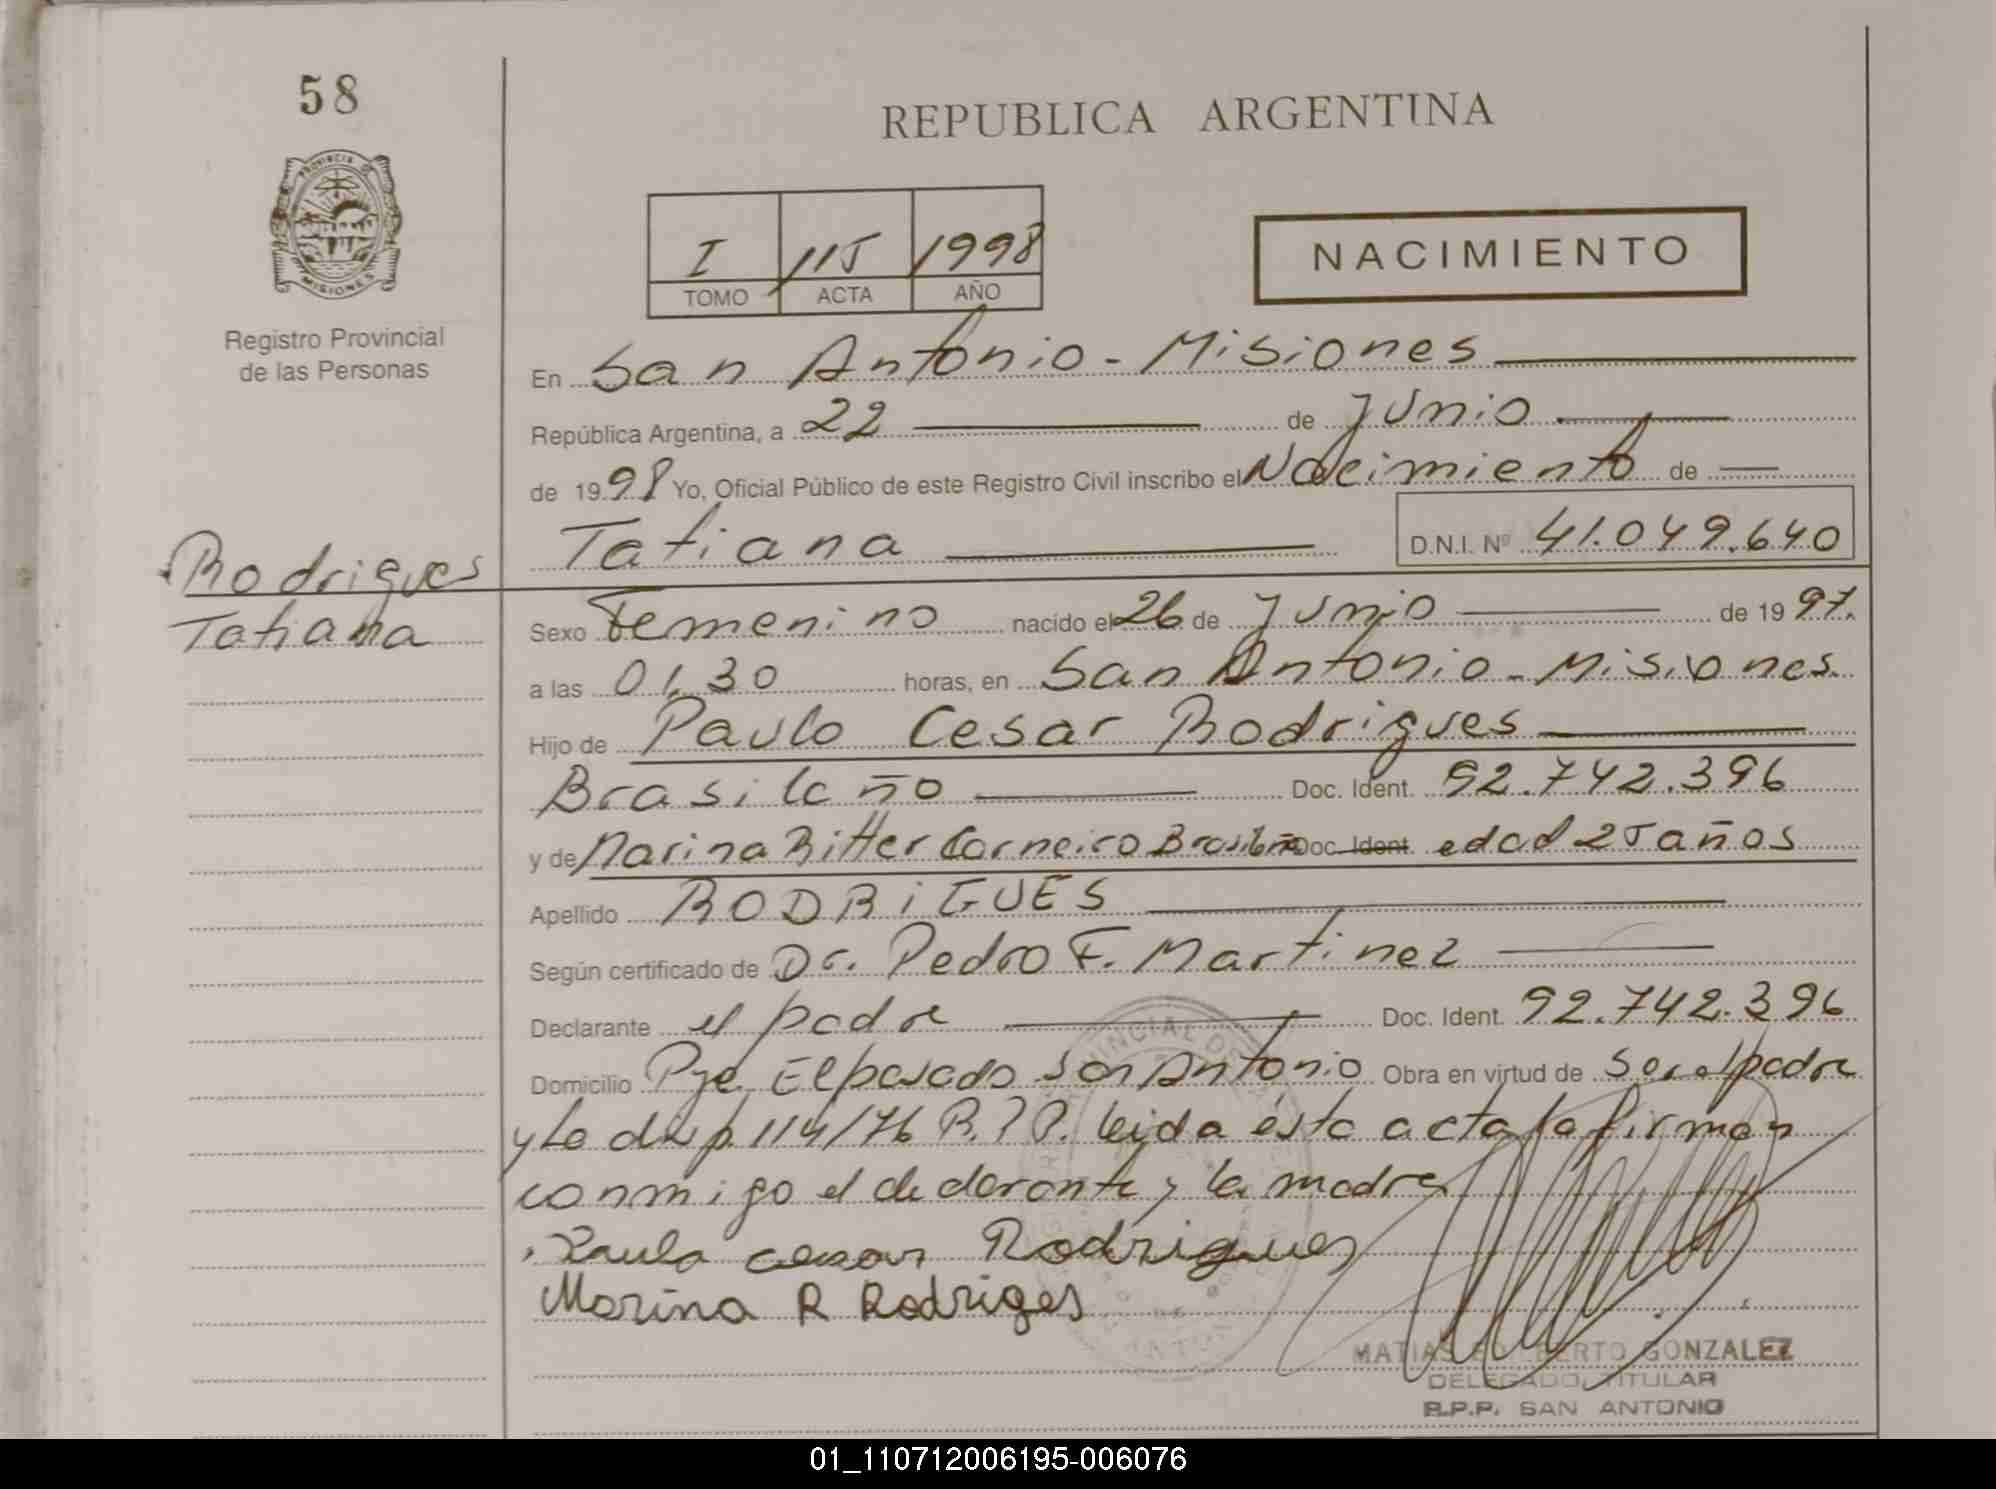 58
REPUBLICA ARGENTINA
PROVINCIA DE
MISIONES
Registro Provincial
de las Personas
I 115 1998
TOMO ACTA AÑO
NACIMIENTO
En San Antonio - Misiones
República Argentina, a 22 de Junio
de 1998 Yo, Oficial Público de este Registro Civil inscribo el Nacimiento de
Tatiana D.N.I. Nº 41.049.640
Rodrigues
Tatiana
Sexo Femenino nacido el 26 de Junio de 1997.
a las 01,30 horas, en San Antonio - Misiones.
Hijo de Paulo Cesar Rodrigues
Brasileño Doc. Ident. 92.742.396
y de Marina Ritter Carneiro Brasileña Doc. Ident. edad 25 años
Apellido RODRIGUES
Según certificado de Dr. Pedro F. Martinez
Declarante el padre Doc. Ident. 92.742.396
Domicilio Pje. El posado San Antonio Obra en virtud de Ser el padre
y Le disp. 114/76 R.P.P. leida ésta acta la firman
conmigo el declarante y la madre
Paulo cesar Rodrigues
Marina R Rodriges
MATIAS GONZALEZ
DELEGADO TITULAR
R.P.P. SAN ANTONIO
01_110712006195-006076